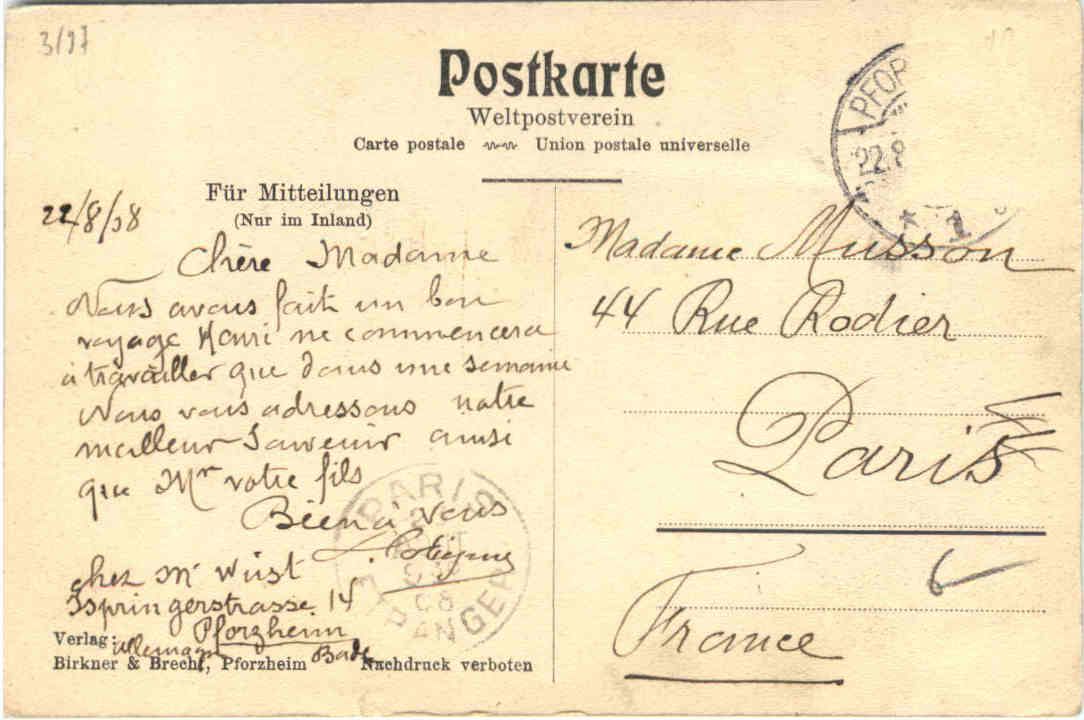 3/97
Postkarte
Weltpostverein
Carte postale Union postale universelle
PFOR
22.8
* 1
Für Mitteilungen
(Nur im Inland)
22/8/08
Chère Madame
Nous avons fait un bon
voyage Henri ne commencera
à travailler que dans une semaine
Nous vous adressons notre
meilleur souvenir ainsi
que Mr votre fils
Bien à vous
chez Mr Wüst
Isprin gerstrasse 14
Pforzheim
Allemagne Bade
Madame Musson
44 Rue Rodier
Paris
France
6
PARIS
08
ETRANGER
Verlag:
Birkner & Brecht, Pforzheim Nachdruck verboten